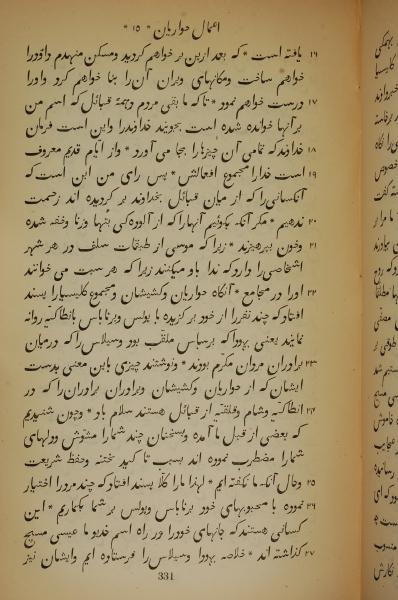 اعمال حواریان * ۱۵ *
۱۶ یافته است * که بعد ازین بر خواهم کردید ومسکن منهدم داودرا
خواهم ساخت ومکانهای ویران آن را بنا خواهم کرد واورا
۱۷ درست خواهم نمود * تا که ما بقی مردم وهمهٔ قبائل که اسم من
بر آنها خوانده شده است بجویند خداوندرا واین است فرمان
۱۸ خداوند که تمامی آن چیزها را بجا می آورد * واز ایّام قدیم معروف
۱۹ است خدارا مجموع افعالش * پس رای من این است که
آنکسانی را که از میان قبائل بخداوند بر کردیده اند زحمت
۲۰ ندهیم * مکر آنکه بکوئیم آنهارا که از آلوده کی بتها وزنا وخفه شده
۲۱ وخون بپرهیزند * زیرا که موسی از طبقات سلف در هر شهر
اشخاصی را دارد که ندا باو میکنند زیرا که هر سبت می خوانند
۲۲ اورا در مجامع * آنکاه حواریان وکشیشان ومجموع کلیسیارا پسند
افتاد که چند نفررا از خود بر کزیده با پولس وبرناباس بانطاکیه روانه
نمایند یعنی یهودا که برسباس ملقّب بود وسیلاس را که درمیان
۲۳ برادران مردان مکرّم بودند * ونوشتند چیزی باین معنی بدست
ایشان که از حواریان وکشیشان وبرادران برادران را که در
۲۴ انطاکیه وشام وقلقیه از قبائل هستند سلام باد * وچون شنیدیم
که بعضی از قبل ما آمده وبسخنان چند شمارا مشوّش ودلهای
شمارا مضطرب نموده اند بسبب تاکید ختنه وحفظ شریعت
۲۵ وحال آنکه ما نکفته ایم * لهذا مارا کلّاً پسند افتاد که چند مردرا اختیار
۲۶ نموده با محبوبهای خود برناباس وپولس بر شما بکماریم * این
کسانی هستند که جانهای خودرا ور راه اسم خدیو ما عیسی مسیح
۲۷ کذاشته اند * خلاصه یهودا وسیلاس را فرستاده ایم وایشان نیز
331